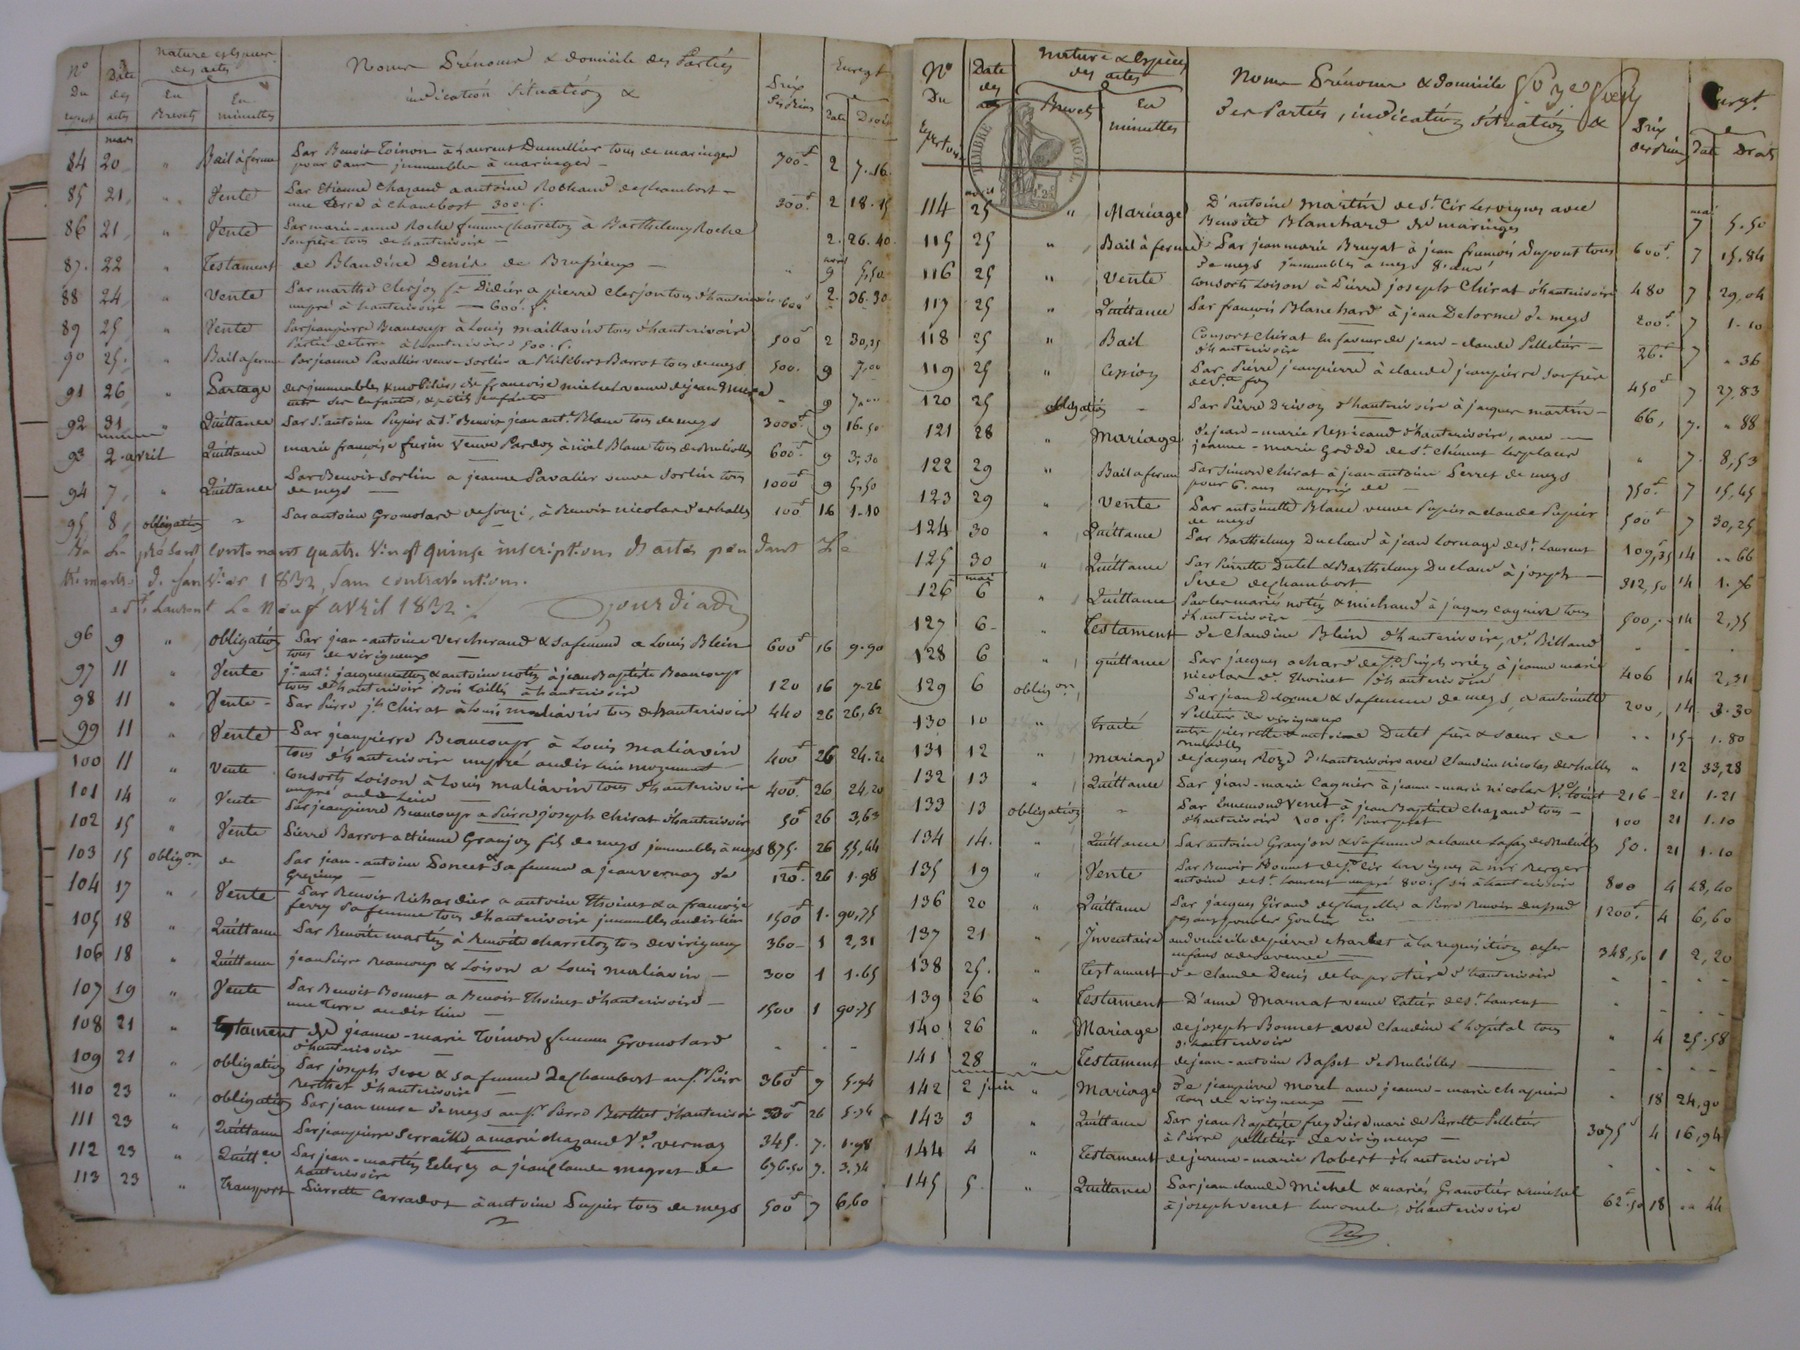 N° Du Date des actes nature espèces des actes Noms Prénoms & domicile des Parties Prix Enregt
En Brevets En minutes indication Situation & Date Droits
mars
84 20 " Bail à ferme Par Benoit Toinon à Laurent Dumellier tous de maringes 700f 2 7.16
pour 6 ans immeubles à maringes
85 21 " Vente Par Etienne Chazaud a antoine Rochand de chambost 300f 2 18.15
une terre à chambost 300.f.
86 21 " Vente Par marie-anne Roche femme charreton à Barthelemy Roche 2. 26.40
son frère tous de hauterivoire
avril
87. 22 " Testament de Blandine Denis de Brussieux " 9 5,50
88 24 " Vente Par marthe clerjon fe Didier a pierre clerjon tous d'hauterivoire 600f 2. 36.30
un pré à hauterivoire 600.f.
89 25 " Vente Par jeanpierre Beaucoup à Louis maillavin tous d'hauterivoire 500 2 30,25
Partie de terre à hauterivoire 500.f.
90 25 " Bail a ferme Par jeanne Pavallier veuve Sorlin a Philibert Barrot tous de meys 500. 9 7,00
91 26 " Partage des immeubles & mobiliers de francoise michel veuve de jean mure " 9 7,00
entre ses enfants, & petits enfants
92 31 " Quittance Par Sr antoine Pupier à Sr Benoit jean ant. Blanc tous de meys 3000f 9 16.50
93 2 avril Quittance marie françoise furin veuve Pardon à noël Blanc tous de Brulioles 600f 9 3,30
94 7 " Quittance Par Benoit Sorlin a jeanne Pavalier veuve Sorlin tous 1000f 9 5,50
de meys
95 8 obligation " Par antoine Gromolard de Souzi, à Benoit nicolas d'eschalles 100f 16 1.10
Vu Le présent contenant quatre Vingt quinze inscriptions d'actes pendant Le
trimestre de Janvier 1832, Sans contravention.
a St Laurent Le Neuf avril 1832.
96 9 " obligation Par jean-antoine Vercherand & sa femme a Louis Blein 600f 16 9.90
tous de virigneux
97 11 " Vente jn ant. jacquemetton & antoine notin à jean Baptiste Beaucoup 120 16 7.26
tous d'hauterivoire Bois taillis à hauterivoire
98 11 " Vente Par Pierre jh Chirat à Louis maliavin tous d'hauterivoire 440 26 26,62
99 11 " Vente Par jeanpierre Beaucoup à Louis maliavin 400f 26 24.20
tous d'hauterivoire un pré audit lieu
100 11 " Vente Consorts Loison à Louis maliavin tous d'hauterivoire 400f 26 24,20
un pré audit Lieu
101 14 " Vente Par jeanpierre Beaucoup a Pierre joseph Chirat d'hauterivoire 50f 26 3,63
102 15 " Vente Pierre Barrot a Etienne Granjon fils de meys immeubles à meys 875. 26 55,44
103 15 obligon " Par jean-antoine Poncet & sa femme a jean vernay de 120f 26 1.98
Grezieux
104 17 " Vente Par Benoit Richardier a antoine Thoinet & a francoise 1500f 1. 90,75
ferry sa femme tous d'hauterivoire immeubles audit lieu
105 18 " Quittance Par Benoite martin à Benoite charreton tous de virigneux 360 1 2,31
106 18 " Quittance jean Pierre Beaucoup & Loison a Louis maliavin 300 1 1.65
107 19 " Vente Par Benoit Bonnet a Benoit Thoinet d'hauterivoire 1500 1 90.75
une Terre audit lieu
108 21 " Testament de jeanne-marie Toinon femme Gromolard - - -
d'hauterivoire
109 21 " obligation Par joseph Seve & sa femme de Chambost au Sr Pierre 360f 7 5.94
Berthet d'hauterivoire
110 23 " obligation Par jean mure de meys au Sr Pierre Berthet d'hauterivoire 26 5.94
111 23 " Quittance Par jeanpierre Serraille a marie chazaud Ve vernay 345. 7. 1.98
112 23 " Quittce Par jean-martin Eclercy a jean claude megret de 676.50 7. 3.74
hauterivoire
113 23 " Transport Pierrette Carradot à antoine Pupier tous de meys 500f 7 6,60
N° Du Repertoire Date des actes nature & espèces des actes Noms Prénoms & domicile Prix Enregt
Brevets En minutes des Parties, indication Situation & des Biens Date Droits
TIMBRE ROYAL
avril mai
114 25 " Mariage D'antoine martin de St Cir les vignes avec 7 5.50
Benoite Blanchard de maringes
115 25 " Bail à ferme Par jean marie Bruyat à jean francois Dupont tous 600f 7 15.84
de meys immeubles à meys 8. ans
116 25 " Vente Consorts Loison à Pierre joseph Chirat d'hauterivoire 480 7 29,04
117 25 " Quittance Par francois Blanchard à jean Delorme de meys 200f 7 1.10
118 25 " Bail Consort Chirat en faveur de jean-claude Pelletier 26f 7 " 36
d'hauterivoire
119 25 " Cession Par Pierre jeanpierre à claude jeanpierre son frère 450f 7 27,83
de Ste foy
120 25 obligation - Par Pierre Drivon d'hauterivoire à jacques martin 66, 7. " 88
121 28 " Mariage de jean-marie Ressicaud d'hauterivoire, avec " 7. 8,53
jeanne-marie Godde de St Clément les places
122 29 " Bail a ferme Par Simon Chirat à jean antoine Perret de meys 750f 7 15,45
pour 6. ans au prix de
123 29 " Vente Par antoinette Blanc veuve Pupier a claude Pupier 500f 7 30,25
de meys
124 30 " Quittance Par Barthelemy Duclaud à jean Lornage de St Laurent 109,35 14 " 66
125 30 " Quittance Par Pierrette Dutel & Barthelemy Duclaud à joseph 312,50 14 1.76
Seve de chambost
mai
126 6 " Quittance Par les mariés notin & michaud à jaques cagnin tous 500, 14 2,75
d'hauterivoire
127 6 " Testament de Claudine Blein d'hauterivoire, Ve Billaud - - -
128 6 " quittance Par jacques achard de St Simphorien à jeanne marie 406 14 2,31
nicolas Ve Thoinet d'hauterivoire
129 6 obligon Par jean Delorme & sa femme de meys, a antoinette 200, 14 3.30
Pelletier de virigneux
130 10 " Traité entre pierrette & antoine Dutel frère & soeur de " 15 1.80
Brulioles
131 12 " Mariage de jacques Rozé d'hauterivoire avec Claudine nicolas des halles " 12 33,28
132 13 " Quittance Par jean-marie Cagnin à jeanne-marie nicolas Ve Toinet 216 21 1.21
133 13 obligation " Par Ennemond venet à jean Baptiste Chazaud tous 100 21 1.10
d'hauterivoire 100.f.
134 14. " Quittance Par antoine Granjon & sa femme a claude Lafay de Brulioles 50. 21 1.10
135 19 " Vente Par Benoit Bonnet de St Cir les vignes à mr Berger 800 4 48,40
antoine de St Laurent un pré 800.f. sis à hauterivoire
136 20 " Quittance Par jacques Giraud de chazelles a Pierre Benoit dupeuble 1200f 4 6,60
137 21 " Inventaire au domicile de pierre charlet à la requisition de ses 348,50 1 2,20
enfans & de sa veuve
138 25. " Testament de Claude Denis de la protière d'hauterivoire - - -
139 26 " Testament D'anne marnat veuve Tatier de St Laurent - - -
140 26 " Mariage de joseph Bonnet avec Claudine L'hopital tous " 4 25.58
d'hauterivoire
141 28 " Testament de jean-antoine Basset de Brulioles - - -
142 2 juin " Mariage de jeanpierre morel avec jeanne-marie chapuis " 18 24,90
tous de virigneux
143 3 " Quittance Par jean Baptiste freydière mari de Pierrette Pelletier 3075f 4 16,94
à Pierre pelletier de virigneux
144 4 " Testament de jeanne-marie Robert d'hauterivoire - - -
145 5. " Quittance Par jean claude Michel & mariés Granotier & michel 62.50 18 " 44
à joseph venet leur oncle, d'hauterivoire